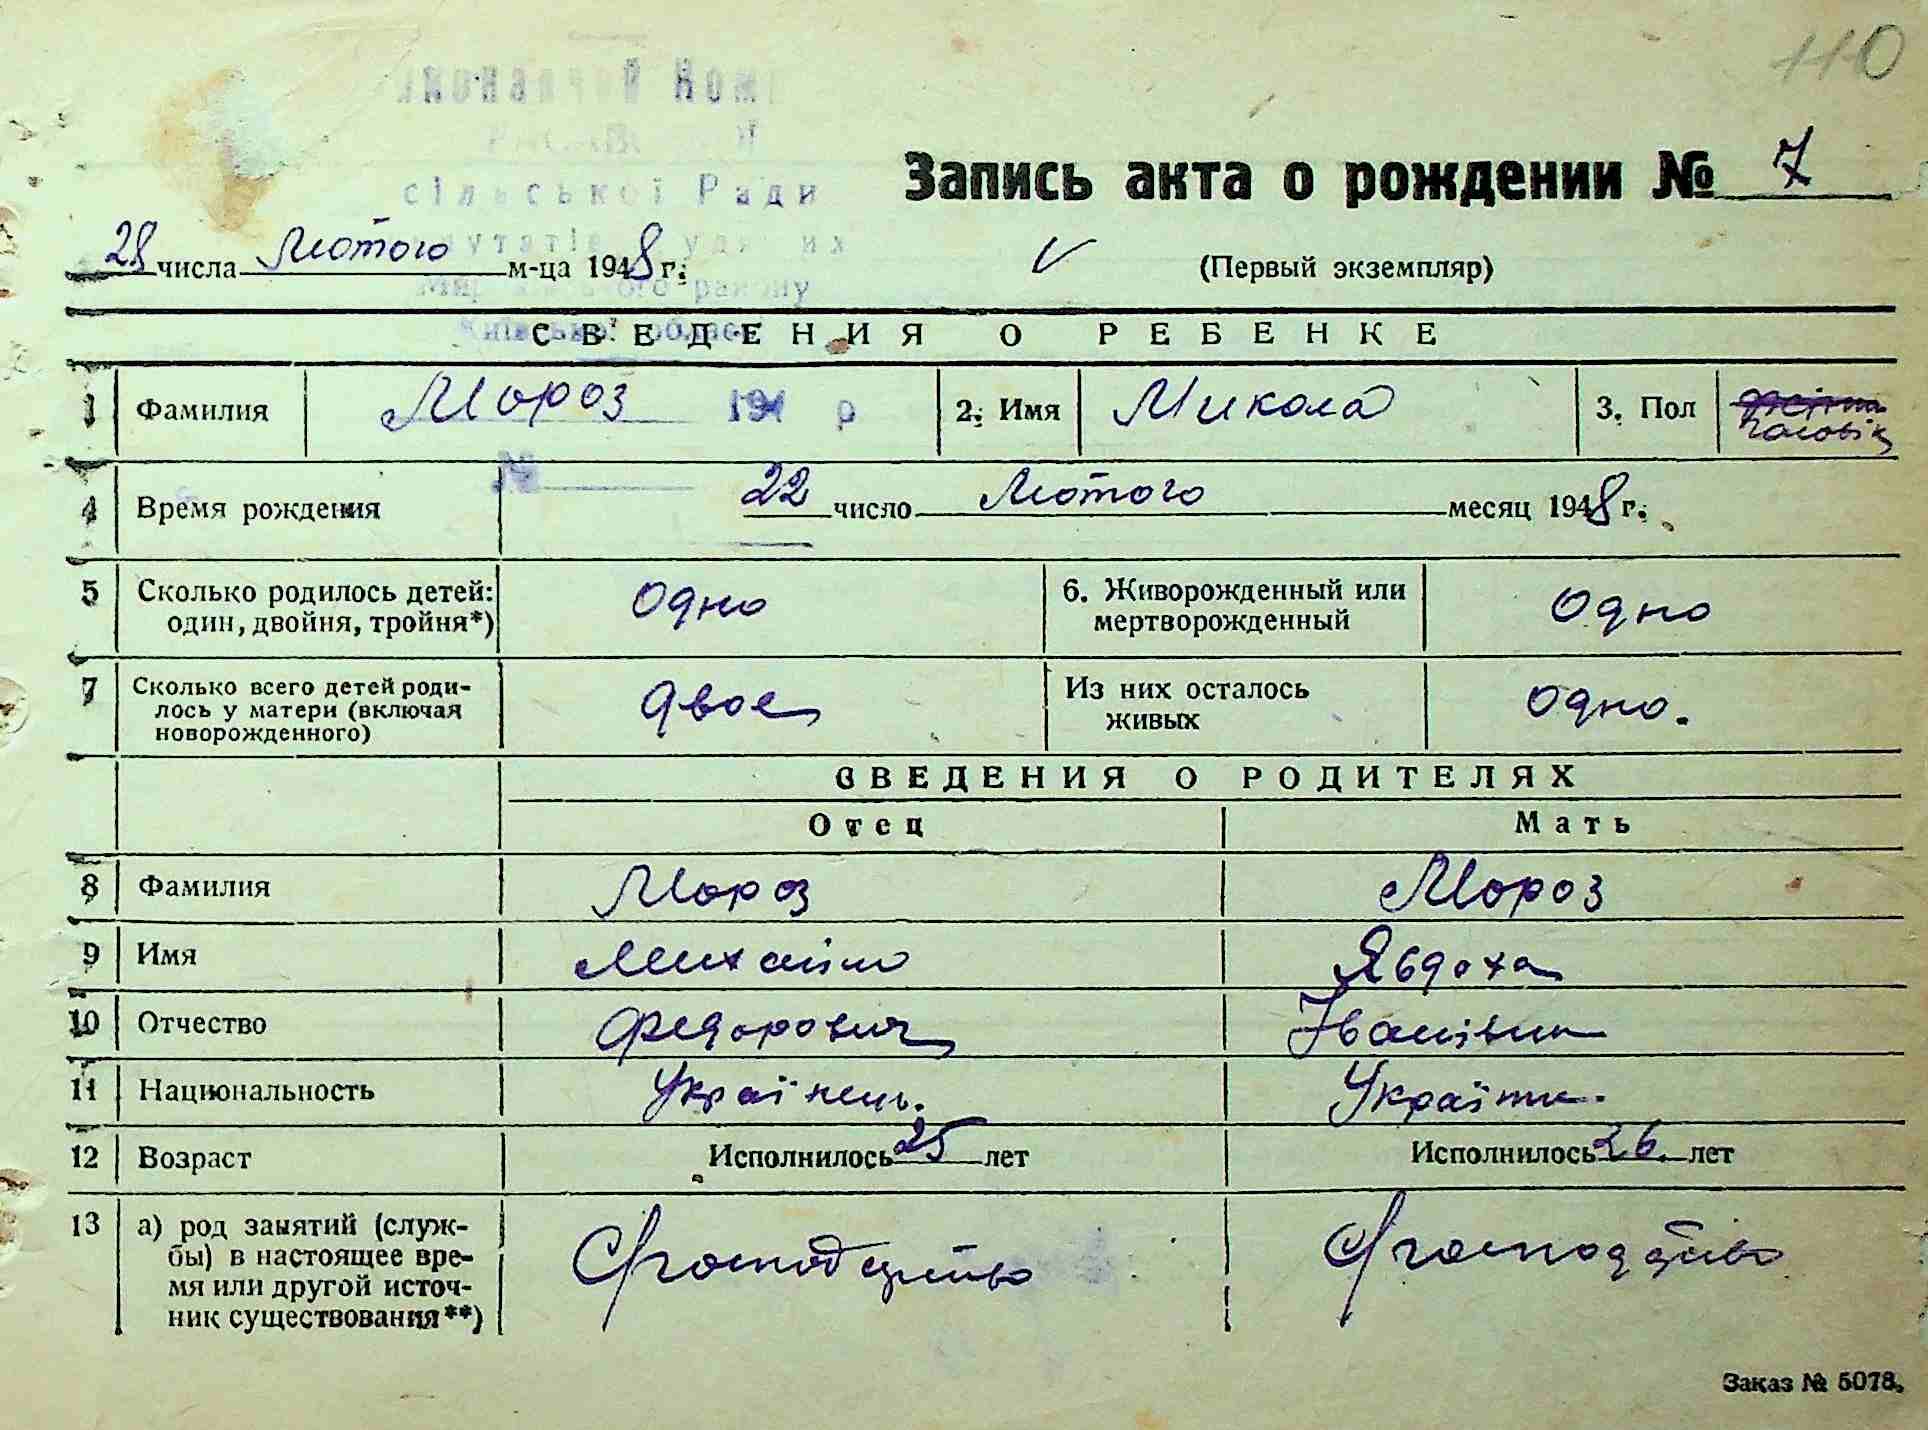 110
Ком
сільської Ради
Запись акта о рождении № 7
28 числа Лютого м-ца 1948 г.
(Первый экземпляр)
району
СВЕДЕНИЯ О РЕБЕНКЕ
1 Фамилия Мороз 194 р 2. Имя Микола 3. Пол чоловік
№
4 Время рождения 22 число Лютого месяц 1948 г.
5 Сколько родилось детей: Одно 6. Живорожденный или Одно
один, двойня, тройня*) мертворожденный
7 Сколько всего детей роди- двое Из них осталось одно.
лось у матери (включая живых
новорожденного)
СВЕДЕНИЯ О РОДИТЕЛЯХ
Отец Мать
8 Фамилия Мороз Мороз
9 Имя Михайло Явдоха
10 Отчество Федорович Іванівна
11 Национальность Українець. Українка.
12 Возраст Исполнилось 25 лет Исполнилось 26 лет
13 а) род занятий (служ-
бы) в настоящее вре-
мя или другой источ-
ник существования**)
Заказ № 5078.